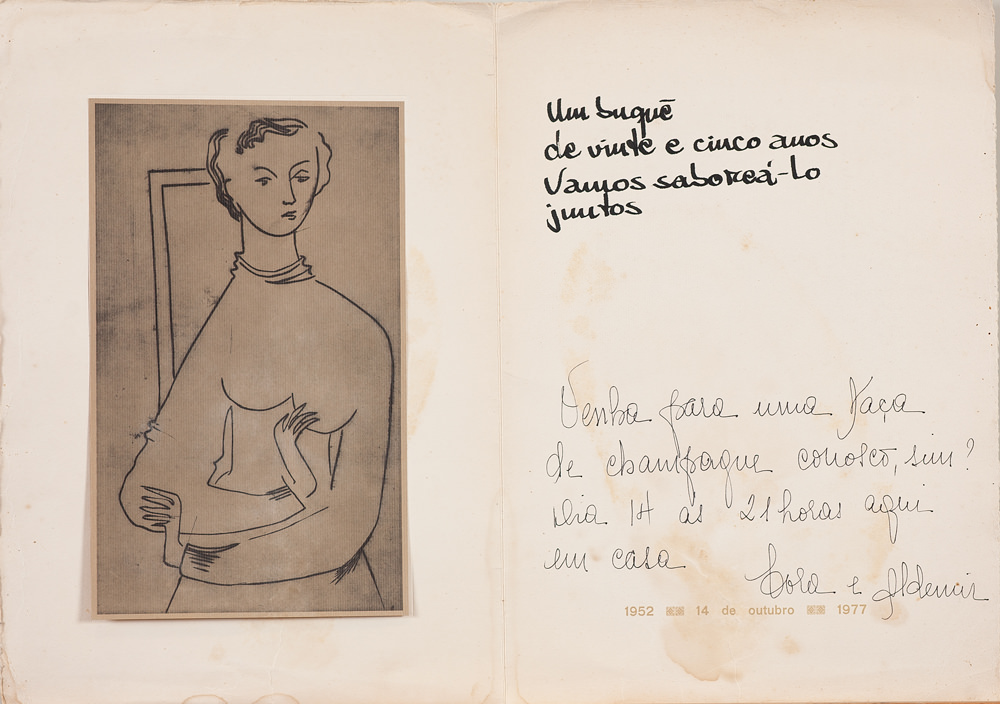 Um buquê
de vinte e cinco anos
Vamos saboreá-lo
juntos
Venha para uma taça
de champagne conosco, sim?
Dia 14 às 21 horas aqui
em casa
Cora e Aldemir
1952 14 de outubro 1977